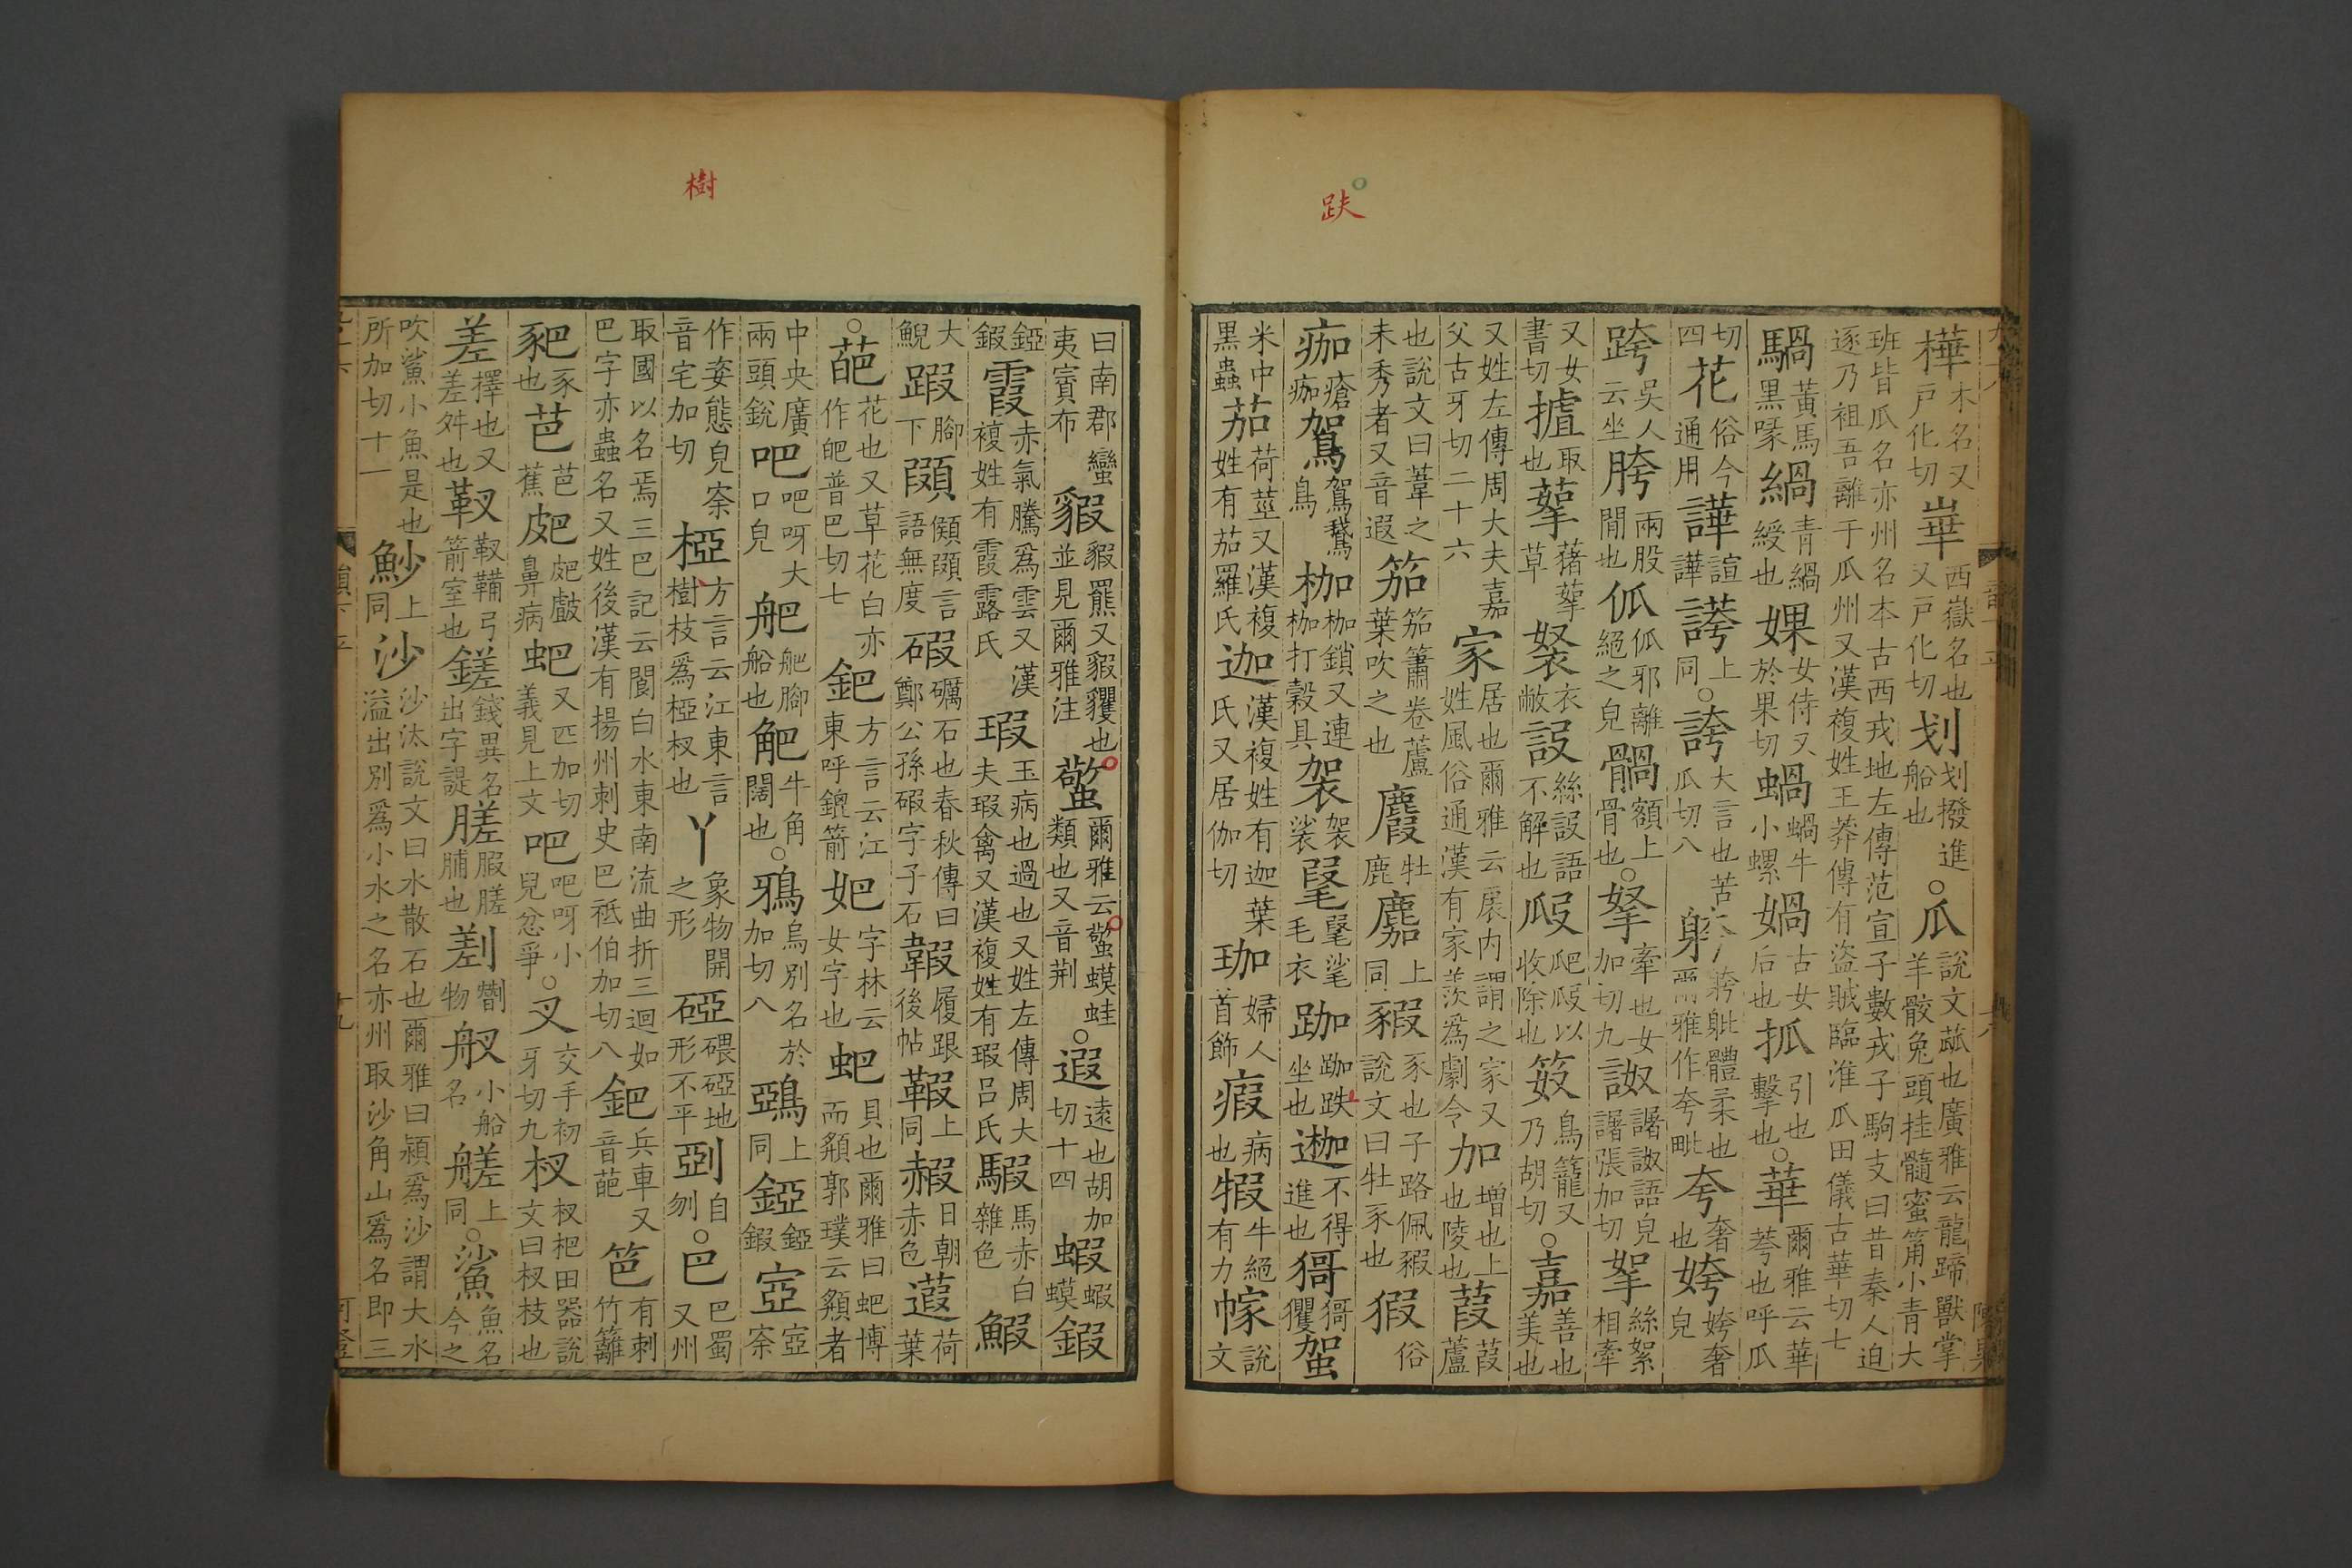 跌
樺木名又戸化切崋西嶽名也又戸化切划划撥進船也○瓜說文㼌也廣雅云龍蹄獸掌羊骹兔頭桂髓蜜筩小青大
班皆瓜名亦州名本古西戎地左傳范宣子數戎子駒支曰昔秦人迫逐乃祖吾離于瓜州又漢複姓王莽傳有盜賊臨淮瓜田儀古華切七
騧黃馬黒喙緺青緺綬也婐女侍又於果切蝸蝸牛小螺媧古女后也抓引也擊也○華爾雅云華荂也呼瓜
切四花俗今通用譁諠譁誇上同○誇大言也苦瓜切八體柔也爾雅作夸毗夸奢也姱姱奢皃
跨吳人云坐胯兩股閒也㐓㐓邪離絕之皃䯞額上骨也○拏牽也女加切九䛏譇䛏語皃譇張加切挐絲絮相牽
又女書切摣取也蒘藸蒘草袃衣敝䛏絲語不解也㸺㸺以收除也笯鳥籠又乃胡切○嘉善也美也
又姓左傳周大夫嘉父古牙切二十六家居也爾雅云扆内謂之家又姓風俗通漢有家羡為劇令加增也上也陵也葭葭蘆
也說文曰葦之未秀者又音遐笳笳簫卷蘆葉吹之也麚牡鹿麍上同豭豕也子路佩豭說文曰牡豕也猳俗
痂瘡痂駕駕鵞鳥枷枷鎖又連枷打糓具袈袈裟毠毠毟毛衣跏跏趺坐也迦不得進也㺊㺊玃䖬
米中黒蟲茄荷莖又漢複姓有茄羅氏迦漢複姓有迦葉氏又居伽切珈婦人首飾瘕病也犌牛絕有力幏說文
樹
曰南郡蠻夷賨布貑貑羆又貑貜也並見爾雅注䗊爾雅云䗊蟆蛙類也又音荆○遐遠也胡加切十四蝦蝦蟆鍜
錏鍜霞赤氣騰為雲又漢複姓有霞露氏瑕玉病也過也又姓左傳周大夫瑕禽又漢複姓有瑕呂氏騢馬赤白雜色鰕
大鯢踻腳下䫗䫗言語無度碬礪石也春秋傳曰鄭公孫碬字子石䪗履跟後帖鞎上同赮日朝赤色葭荷葉
○葩花也又草花白亦作皅普巴切七鈀方言云江東呼鎞箭妑字林云女字也蚆貝也爾雅曰蚆博而頯郭璞云頯者
中央廣兩頭銳吧吧呀大口皃舥舥䑰船也䶕牛角闊也○鵶烏別名於加切八鵶上同錏錏鍜䆘䆘䆛
作姿態皃䆛音宅加切椏方言云江東言樹枝為椏杈也丫象物開之形砑碨砑地形不平䢝自刎○巴巴蜀又州
取國以名焉三巴記云閬白水東南流曲折三迴如巴字亦蟲名又姓後漢有揚州刺史巴祗伯加切八鈀兵車又音葩笆有刺竹籬
豝豕也芭芭蕉䶕鼻病蚆又匹加切義見上文吧吧呀小兒忿爭○叉交手初牙切九杈杈杷田器說文曰杈枝也
差擇也又差舛也靫靫鞴弓箭室也鎈錢異名出字諟䐤腵䐤脯也剗物舣小船名艖上同○鯊魚名今之
吹鯊小魚是也所加切十一魦上同沙沙汰說文曰水散石也爾雅曰潁為沙謂大水溢出別為小水之名亦州取沙角山為名即三